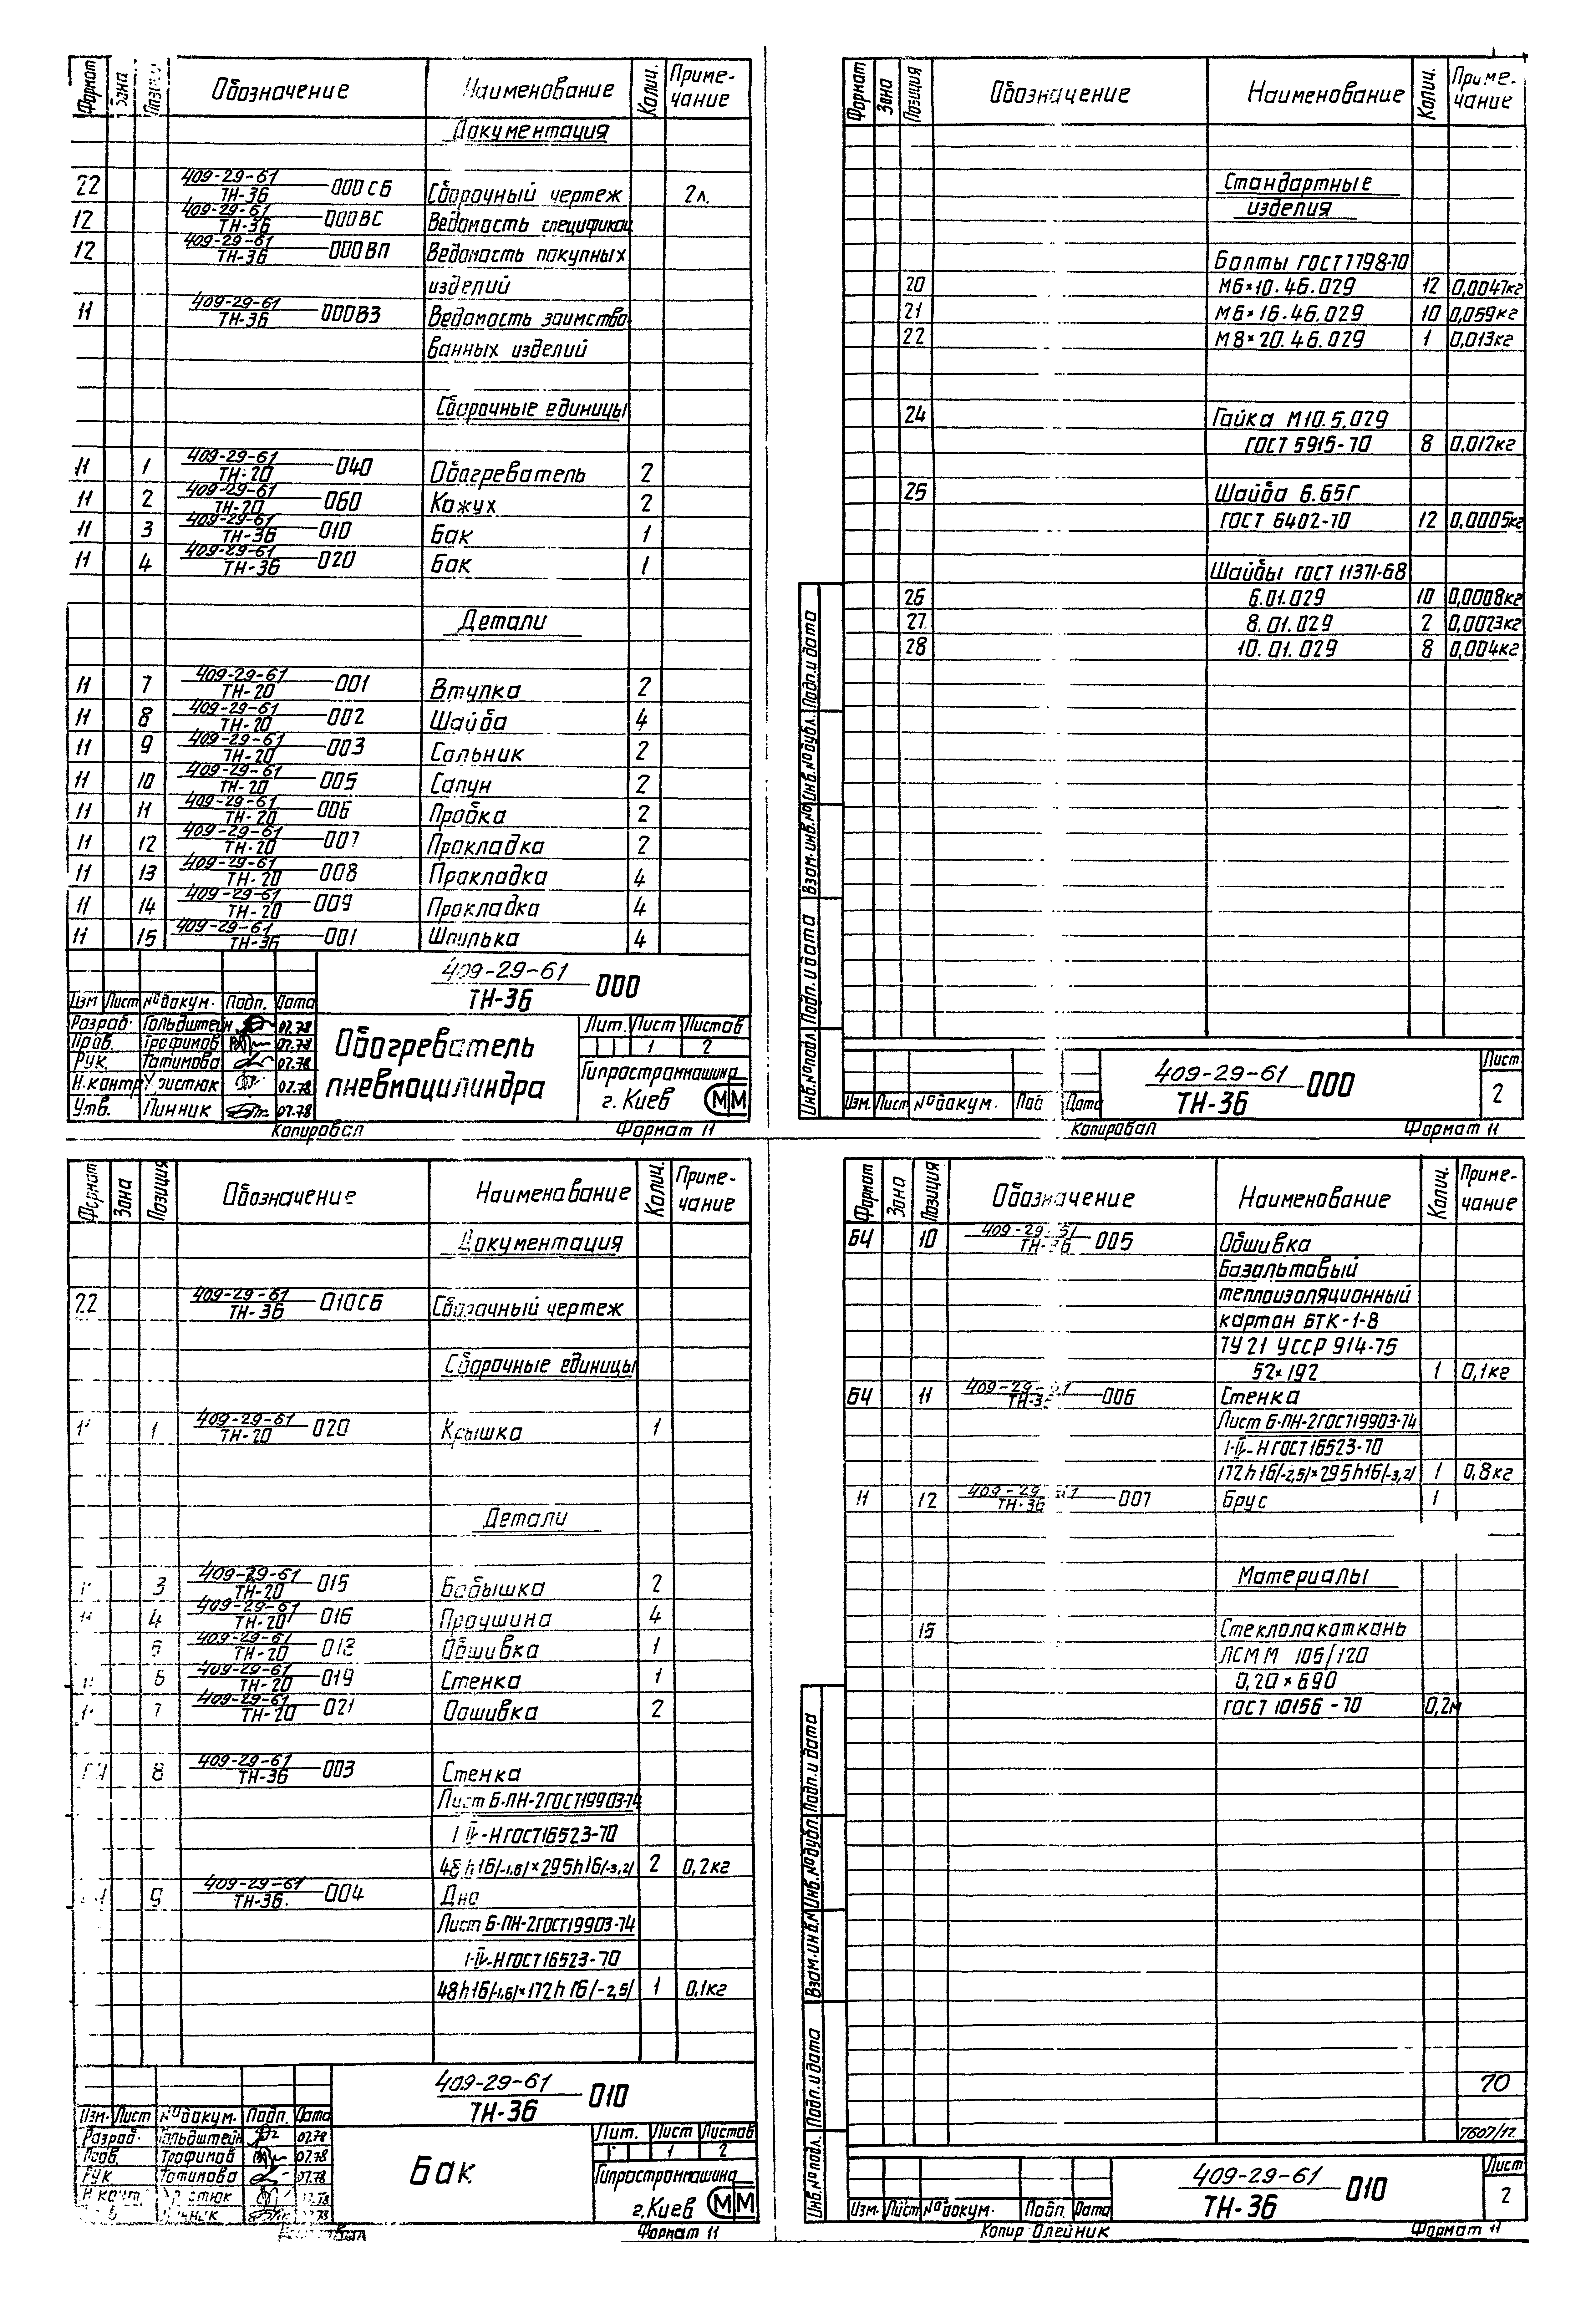 Формат Зона Обозначение Наименование Колич. Приме-
чание
Документация
22 409-29-61/ТН-36 000СБ Сборочный чертеж 2л.
12 409-29-61/ТН-36 000ВС Ведомость спецификац
12 409-29-61/ТН-36 000ВП Ведомость покупных
изделий
11 409-29-61/ТН-36 000ВЗ Ведомость заимство-
ванных изделий
Сборочные единицы
11 1 409-29-61/ТН-20 040 Обогреватель 2
11 2 409-29-61/ТН-20 060 Кожух 2
11 3 409-29-61/ТН-36 010 Бак 1
11 4 409-29-61/ТН-36 020 Бак 1
Детали
11 7 409-29-61/ТН-20 001 Втулка 2
11 8 409-29-61/ТН-20 002 Шайба 4
11 9 409-29-61/ТН-20 003 Сальник 2
11 10 409-29-61/ТН-20 005 Сапун 2
11 11 409-29-61/ТН-20 006 Пробка 2
11 12 409-29-61/ТН-20 007 Прокладка 2
11 13 409-29-61/ТН-20 008 Прокладка 4
11 14 409-29-61/ТН-20 009 Прокладка 4
11 15 409-29-61/ТН-36 001 Шпилька 4
409-29-61/ТН-36 000
Изм Лист № докум. Подп. Дата
Разраб. Гольдштейн 07.78
Пров. Трофимов 07.78
Рук. Фатимова 07.78
Н.контр 07.78
Утв. Линник 07.78
Обогреватель
пневмоцилиндра
Лит. Лист Листов
1 2
Гипростроммашина
г. Киев ММ
Копировал Формат 11
Формат Зона Позиция Обозначение Наименование Колич. Приме-
чание
Стандартные
изделия
Болты ГОСТ 7798-70
20 М6×10.46.029 12 0,0047кг
21 М6×16.46.029 10 0,059кг
22 М8×20.46.029 1 0,013кг
24 Гайка М10.5.029
ГОСТ 5915-70 8 0,012кг
25 Шайба 6.65Г
ГОСТ 6402-70 12 0,0005кг
Шайбы ГОСТ 11371-68
26 6.01.029 10 0,0008кг
27 8.01.029 2 0,0023кг
28 10.01.029 8 0,004кг
Инв.№подл. Подп. и дата Взам.инв.№ Инв.№дубл. Подп. и дата
409-29-61/ТН-36 000
Лист
2
Изм. Лист № докум. Под Дата
Копировал Формат 11
Формат Зона Позиция Обозначение Наименование Колич. Приме-
чание
Документация
22 409-29-61/ТН-36 010СБ Сборочный чертеж
Сборочные единицы
1 409-29-61/ТН-20 020 Крышка 1
Детали
3 409-29-61/ТН-20 015 Бобышка 2
4 409-29-61/ТН-20 016 Проушина 4
409-29-61/ТН-20 Обшивка 1
6 409-29-61/ТН-20 019 Стенка 1
7 409-29-61/ТН-20 021 Обшивка 2
8 409-29-61/ТН-36 003 Стенка
Лист Б-ПН-2ГОСТ19903-74
I-IV-НГОСТ16523-70
48h16/-1,6/×295h16/-3,2/ 2 0,2кг
9 409-29-61/ТН-36 004 Дно
Лист Б-ПН-2ГОСТ19903-74
I-IV-НГОСТ16523-70
48h16/-1,6/×172h16/-2,5/ 1 0,1кг
409-29-61/ТН-36 010
Изм. Лист № докум. Подп. Дата
Разраб. Гольдштейн 07.78
Пров. Трофимов 07.78
Рук Фатимова 07.78
Бак
Лит. Лист Листов
1 2
Гипростроммашина
г.Киев ММ
Формат 11
Формат Зона Позиция Обозначение Наименование Колич. Приме-
чание
БЧ 10 409-29-61/ТН-36 005 Обшивка
Базальтовый
теплоизоляционный
картон БТК-1-8
ТУ21 УССР 914-75
52×192 1 0,1кг
БЧ 11 409-29-61/ТН-36 006 Стенка
Лист Б-ПН-2ГОСТ19903-74
I-IV-НГОСТ16523-70
172h16/-2,5/×295h16/-3,2/ 1 0,8кг
11 12 409-29-61/ТН-36 007 Брус 1
Материалы
15 Стеклолакоткань
ЛСММ 105/120
0,20×690
ГОСТ 10156-70 0,2м
70
7607/12
Инв.№подл. Подп. и дата Взам.инв.№ Инв.№дубл. Подп. и дата
409-29-61/ТН-36 010
Лист
2
Изм. Лист № докум. Подп. Дата
Копир Олейник Формат 11